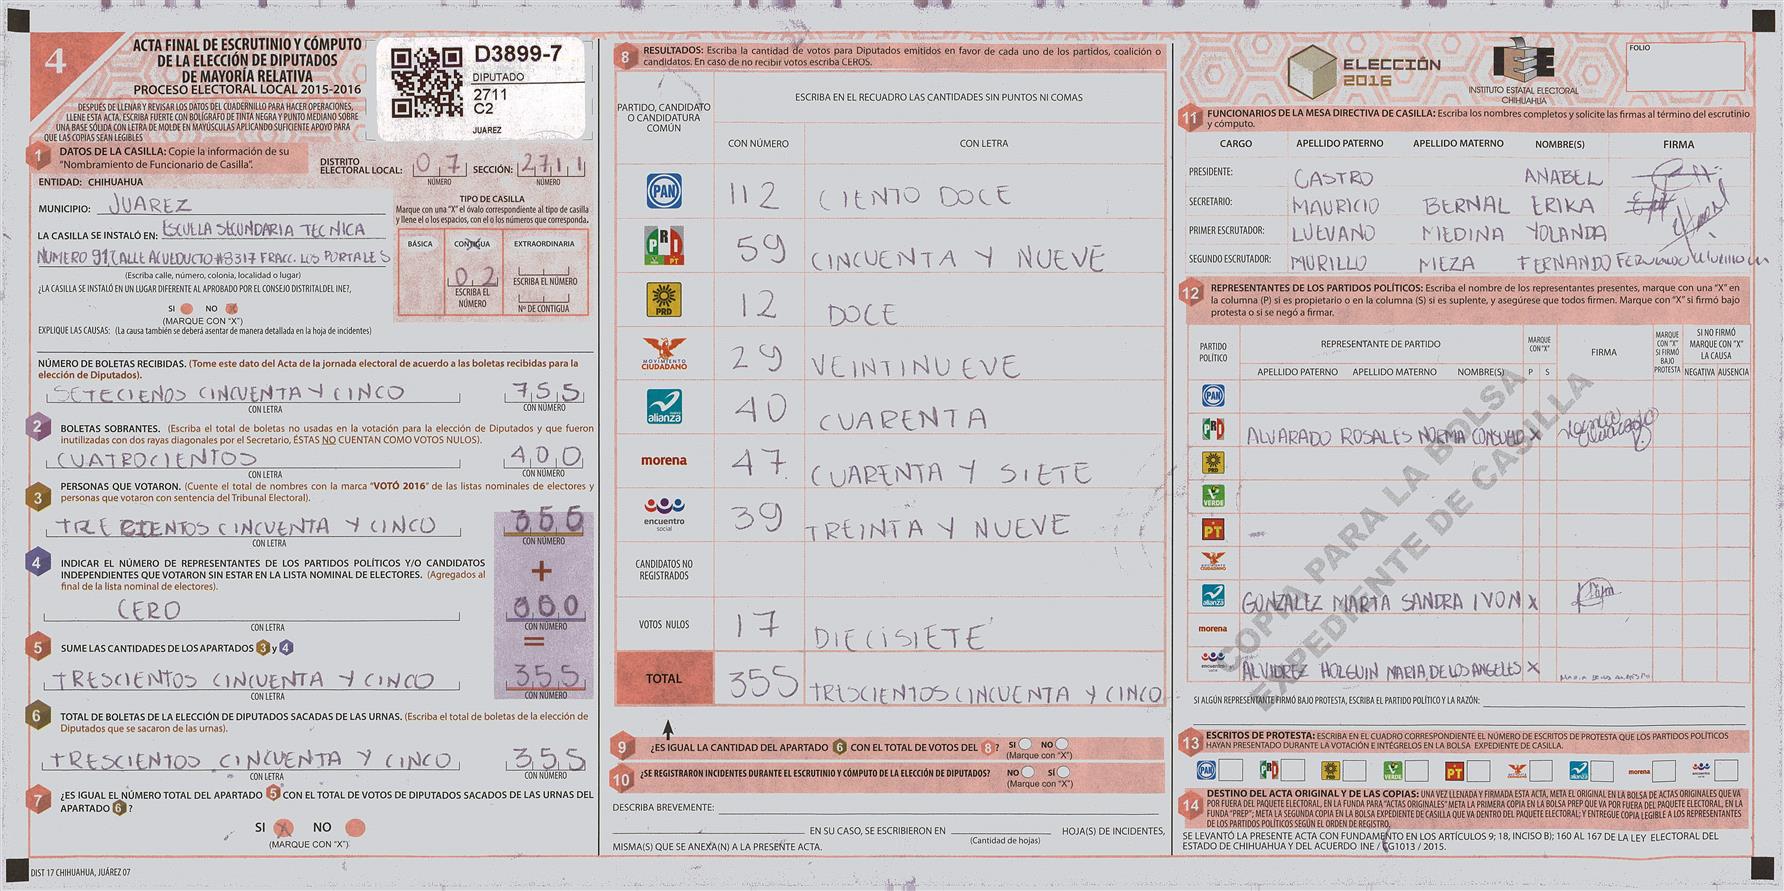 4
ACTA FINAL DE ESCRUTINIO Y CÓMPUTO
DE LA ELECCIÓN DE DIPUTADOS
DE MAYORÍA RELATIVA
PROCESO ELECTORAL LOCAL 2015-2016
DESPUÉS DE LLENAR Y REVISAR LOS DATOS DEL CUADERNILLO PARA HACER OPERACIONES,
LLENE ESTA ACTA. ESCRIBA FUERTE CON BOLÍGRAFO DE TINTA NEGRA Y PUNTO MEDIANO SOBRE
UNA BASE SÓLIDA CON LETRA DE MOLDE EN MAYÚSCULAS APLICANDO SUFICIENTE APOYO PARA
QUE LAS COPIAS SEAN LEGIBLES
D3899-7
DIPUTADO
2711
C2
JUAREZ
1 DATOS DE LA CASILLA: Copie la información de su
"Nombramiento de Funcionario de Casilla".
DISTRITO ELECTORAL LOCAL: 07 NÚMERO SECCIÓN: 2711 NÚMERO
ENTIDAD: CHIHUAHUA
MUNICIPIO: JUAREZ
LA CASILLA SE INSTALÓ EN: ESCUELA SECUNDARIA TECNICA
NUMERO 91, CALLE ACUEDUCTO #8317 FRACC. LOS PORTALES
(Escriba calle, número, colonia, localidad o lugar)
¿LA CASILLA SE INSTALÓ EN UN LUGAR DIFERENTE AL APROBADO POR EL CONSEJO DISTRITAL DEL INE?,
SI NO X
(MARQUE CON "X")
EXPLIQUE LAS CAUSAS: (La causa también se deberá asentar de manera detallada en la hoja de incidentes)
TIPO DE CASILLA
Marque con una "X" el óvalo correspondiente al tipo de casilla
y llene el o los espacios, con el o los números que corresponda.
BÁSICA CONTIGUA EXTRAORDINARIA
02
ESCRIBA EL NÚMERO ESCRIBA EL NÚMERO
Nº DE CONTIGUA
NÚMERO DE BOLETAS RECIBIDAS. (Tome este dato del Acta de la jornada electoral de acuerdo a las boletas recibidas para la
elección de Diputados).
SETECIENOS CINCUENTA Y CINCO 755
CON LETRA CON NÚMERO
2 BOLETAS SOBRANTES. (Escriba el total de boletas no usadas en la votación para la elección de Diputados y que fueron
inutilizadas con dos rayas diagonales por el Secretario, ÉSTAS NO CUENTAN COMO VOTOS NULOS).
CUATROCIENTOS 400
CON LETRA CON NÚMERO
3 PERSONAS QUE VOTARON. (Cuente el total de nombres con la marca "VOTÓ 2016" de las listas nominales de electores y
personas que votaron con sentencia del Tribunal Electoral).
TRECIENTOS CINCUENTA Y CINCO 355
CON LETRA CON NÚMERO
4 INDICAR EL NÚMERO DE REPRESENTANTES DE LOS PARTIDOS POLÍTICOS Y/O CANDIDATOS
INDEPENDIENTES QUE VOTARON SIN ESTAR EN LA LISTA NOMINAL DE ELECTORES. (Agregados al
final de la lista nominal de electores).
+
CERO 000
CON LETRA CON NÚMERO
=
5 SUME LAS CANTIDADES DE LOS APARTADOS 3 y 4
TRESCIENTOS CINCUENTA Y CINCO 355
CON LETRA CON NÚMERO
6 TOTAL DE BOLETAS DE LA ELECCIÓN DE DIPUTADOS SACADAS DE LAS URNAS. (Escriba el total de boletas de la elección de
Diputados que se sacaron de las urnas).
TRESCIENTOS CINCUENTA Y CINCO 355
CON LETRA CON NÚMERO
7 ¿ES IGUAL EL NÚMERO TOTAL DEL APARTADO 5 CON EL TOTAL DE VOTOS DE DIPUTADOS SACADOS DE LAS URNAS DEL
APARTADO 6?
SI X NO
(MARQUE CON "X")
DIST 17 CHIHUAHUA, JUÁREZ 07
8 RESULTADOS: Escriba la cantidad de votos para Diputados emitidos en favor de cada uno de los partidos, coalición o
candidatos. En caso de no recibir votos escriba CEROS.
PARTIDO, CANDIDATO O CANDIDATURA COMÚN
ESCRIBA EN EL RECUADRO LAS CANTIDADES SIN PUNTOS NI COMAS
CON NÚMERO CON LETRA
PAN 112 CIENTO DOCE
PRI VERDE PT 59 CINCUENTA Y NUEVE
PRD 12 DOCE
MOVIMIENTO CIUDADANO 29 VEINTINUEVE
nueva alianza 40 CUARENTA
morena 47 CUARENTA Y SIETE
encuentro social 39 TREINTA Y NUEVE
CANDIDATOS NO REGISTRADOS
VOTOS NULOS 17 DIECISIETE
TOTAL 355 TRESCIENTOS CINCUENTA Y CINCO
9 ¿ES IGUAL LA CANTIDAD DEL APARTADO 6 CON EL TOTAL DE VOTOS DEL 8? SI NO
(Marque con "X")
10 ¿SE REGISTRARON INCIDENTES DURANTE EL ESCRUTINIO Y CÓMPUTO DE LA ELECCIÓN DE DIPUTADOS? NO SÍ
(Marque con "X")
DESCRIBA BREVEMENTE:
EN SU CASO, SE ESCRIBIERON EN HOJA(S) DE INCIDENTES,
(Cantidad de hojas)
MISMA(S) QUE SE ANEXA(N) A LA PRESENTE ACTA.
ELECCIÓN
2016
IEE
INSTITUTO ESTATAL ELECTORAL
CHIHUAHUA
FOLIO
11 FUNCIONARIOS DE LA MESA DIRECTIVA DE CASILLA: Escriba los nombres completos y solicite las firmas al término del escrutinio
y cómputo.
CARGO APELLIDO PATERNO APELLIDO MATERNO NOMBRE(S) FIRMA
PRESIDENTE: CASTRO ANABEL
SECRETARIO: MAURICIO BERNAL ERIKA
PRIMER ESCRUTADOR: LUEVANO MEDINA YOLANDA
SEGUNDO ESCRUTADOR: MURILLO MEZA FERNANDO
12 REPRESENTANTES DE LOS PARTIDOS POLÍTICOS: Escriba el nombre de los representantes presentes, marque con una "X" en
la columna (P) si es propietario o en la columna (S) si es suplente, y asegúrese que todos firmen. Marque con "X" si firmó bajo
protesta o si se negó a firmar.
PARTIDO POLÍTICO REPRESENTANTE DE PARTIDO MARQUE CON "X" FIRMA MARQUE CON "X" SI FIRMÓ BAJO PROTESTA SI NO FIRMÓ MARQUE CON "X" LA CAUSA
APELLIDO PATERNO APELLIDO MATERNO NOMBRE(S) P S NEGATIVA AUSENCIA
PAN
PRI ALVARADO ROSALES NOEMA CONSUELO X
PRD
VERDE
PT
MOVIMIENTO CIUDADANO
alianza GONZALEZ MARTA SANDRA IVON X
morena
encuentro social ALVIDREZ HOLGUIN MARIA DE LOS ANGELES X
COPIA PARA LA BOLSA
EXPEDIENTE DE CASILLA
SI ALGÚN REPRESENTANTE FIRMÓ BAJO PROTESTA, ESCRIBA EL PARTIDO POLÍTICO Y LA RAZÓN:
13 ESCRITOS DE PROTESTA: ESCRIBA EN EL CUADRO CORRESPONDIENTE EL NÚMERO DE ESCRITOS DE PROTESTA QUE LOS PARTIDOS POLÍTICOS
HAYAN PRESENTADO DURANTE LA VOTACIÓN E INTÉGRELOS EN LA BOLSA EXPEDIENTE DE CASILLA.
PAN PRI PRD VERDE PT alianza morena
14 DESTINO DEL ACTA ORIGINAL Y DE LAS COPIAS: UNA VEZ LLENADA Y FIRMADA ESTA ACTA, META EL ORIGINAL EN LA BOLSA DE ACTAS ORIGINALES QUE VA
POR FUERA DEL PAQUETE ELECTORAL, EN LA FUNDA PARA "ACTAS ORIGINALES" META LA PRIMERA COPIA EN LA BOLSA PREP QUE VA POR FUERA DEL PAQUETE ELECTORAL, EN LA
FUNDA "PREP"; META LA SEGUNDA COPIA EN LA BOLSA EXPEDIENTE DE CASILLA QUE VA DENTRO DEL PAQUETE ELECTORAL; Y ENTREGUE COPIA LEGIBLE A LOS REPRESENTANTES
DE LOS PARTIDOS POLÍTICOS SEGÚN EL ORDEN DE REGISTRO.
SE LEVANTÓ LA PRESENTE ACTA CON FUNDAMENTO EN LOS ARTÍCULOS 9; 18, INCISO B); 160 AL 167 DE LA LEY ELECTORAL DEL
ESTADO DE CHIHUAHUA Y DEL ACUERDO INE / CG1013 / 2015.